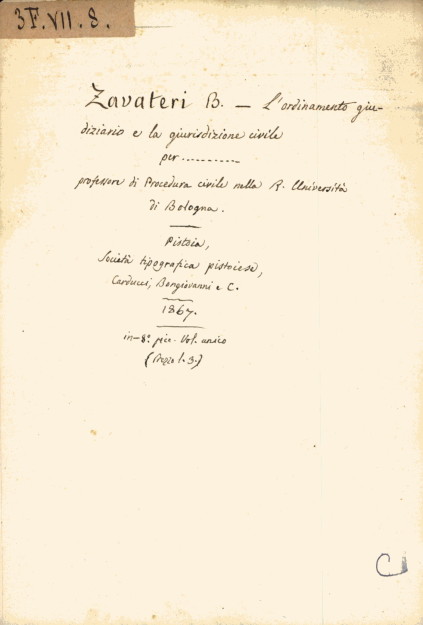 3F.VII.8.
Zavateri B. — L'ordinamento giu-
diziario e la giurisdizione civile
per ...........
professore di Procedura civile nella R. Università
di Bologna.
Pistoia,
Società tipografica pistoiese,
Carducci, Bongiovanni e C.
1867.
in-8º. picc. Vol. unico
(Prezzo l. 3.)
C